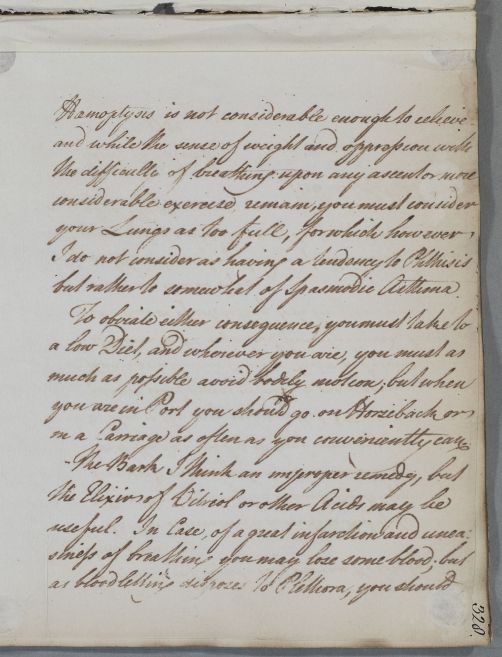 Hæmoptysis is not considerable enough to relieve
and while the sense of weight and oppression with
the difficulty of breathing upon any ascent or more
considerable exercise remain, you must consider
your Lungs as too full, for which however
I do not consider as having a tendency to Phthisis
but rather to somewhat of Spasmodic Asthma
To obviate either consequence, you must take to
a low Diet, and wherever you are, you must as
much as possible avoid bodily motion, but when
you are in Port you should go on Horseback or
in a Carriage as often as you conveniently can
- The Bark I think an improper remedy, but
the Elixir of Vitriol or other Acids may be
useful. In Case, of a great infarction and unea-
siness of breathing you may lose some blood, but
as bloodletting disposes to Plethora, you should
328.